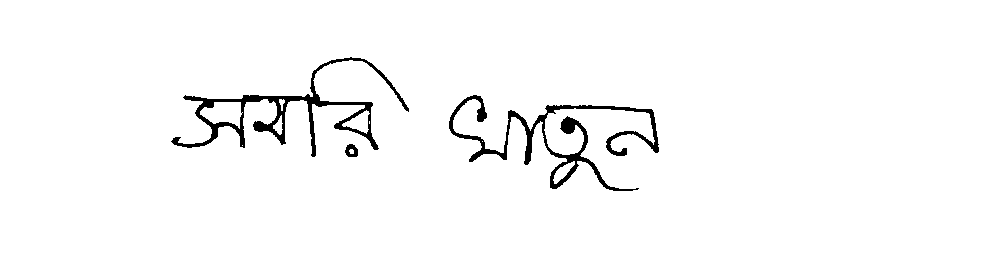 সবারি খাতুন